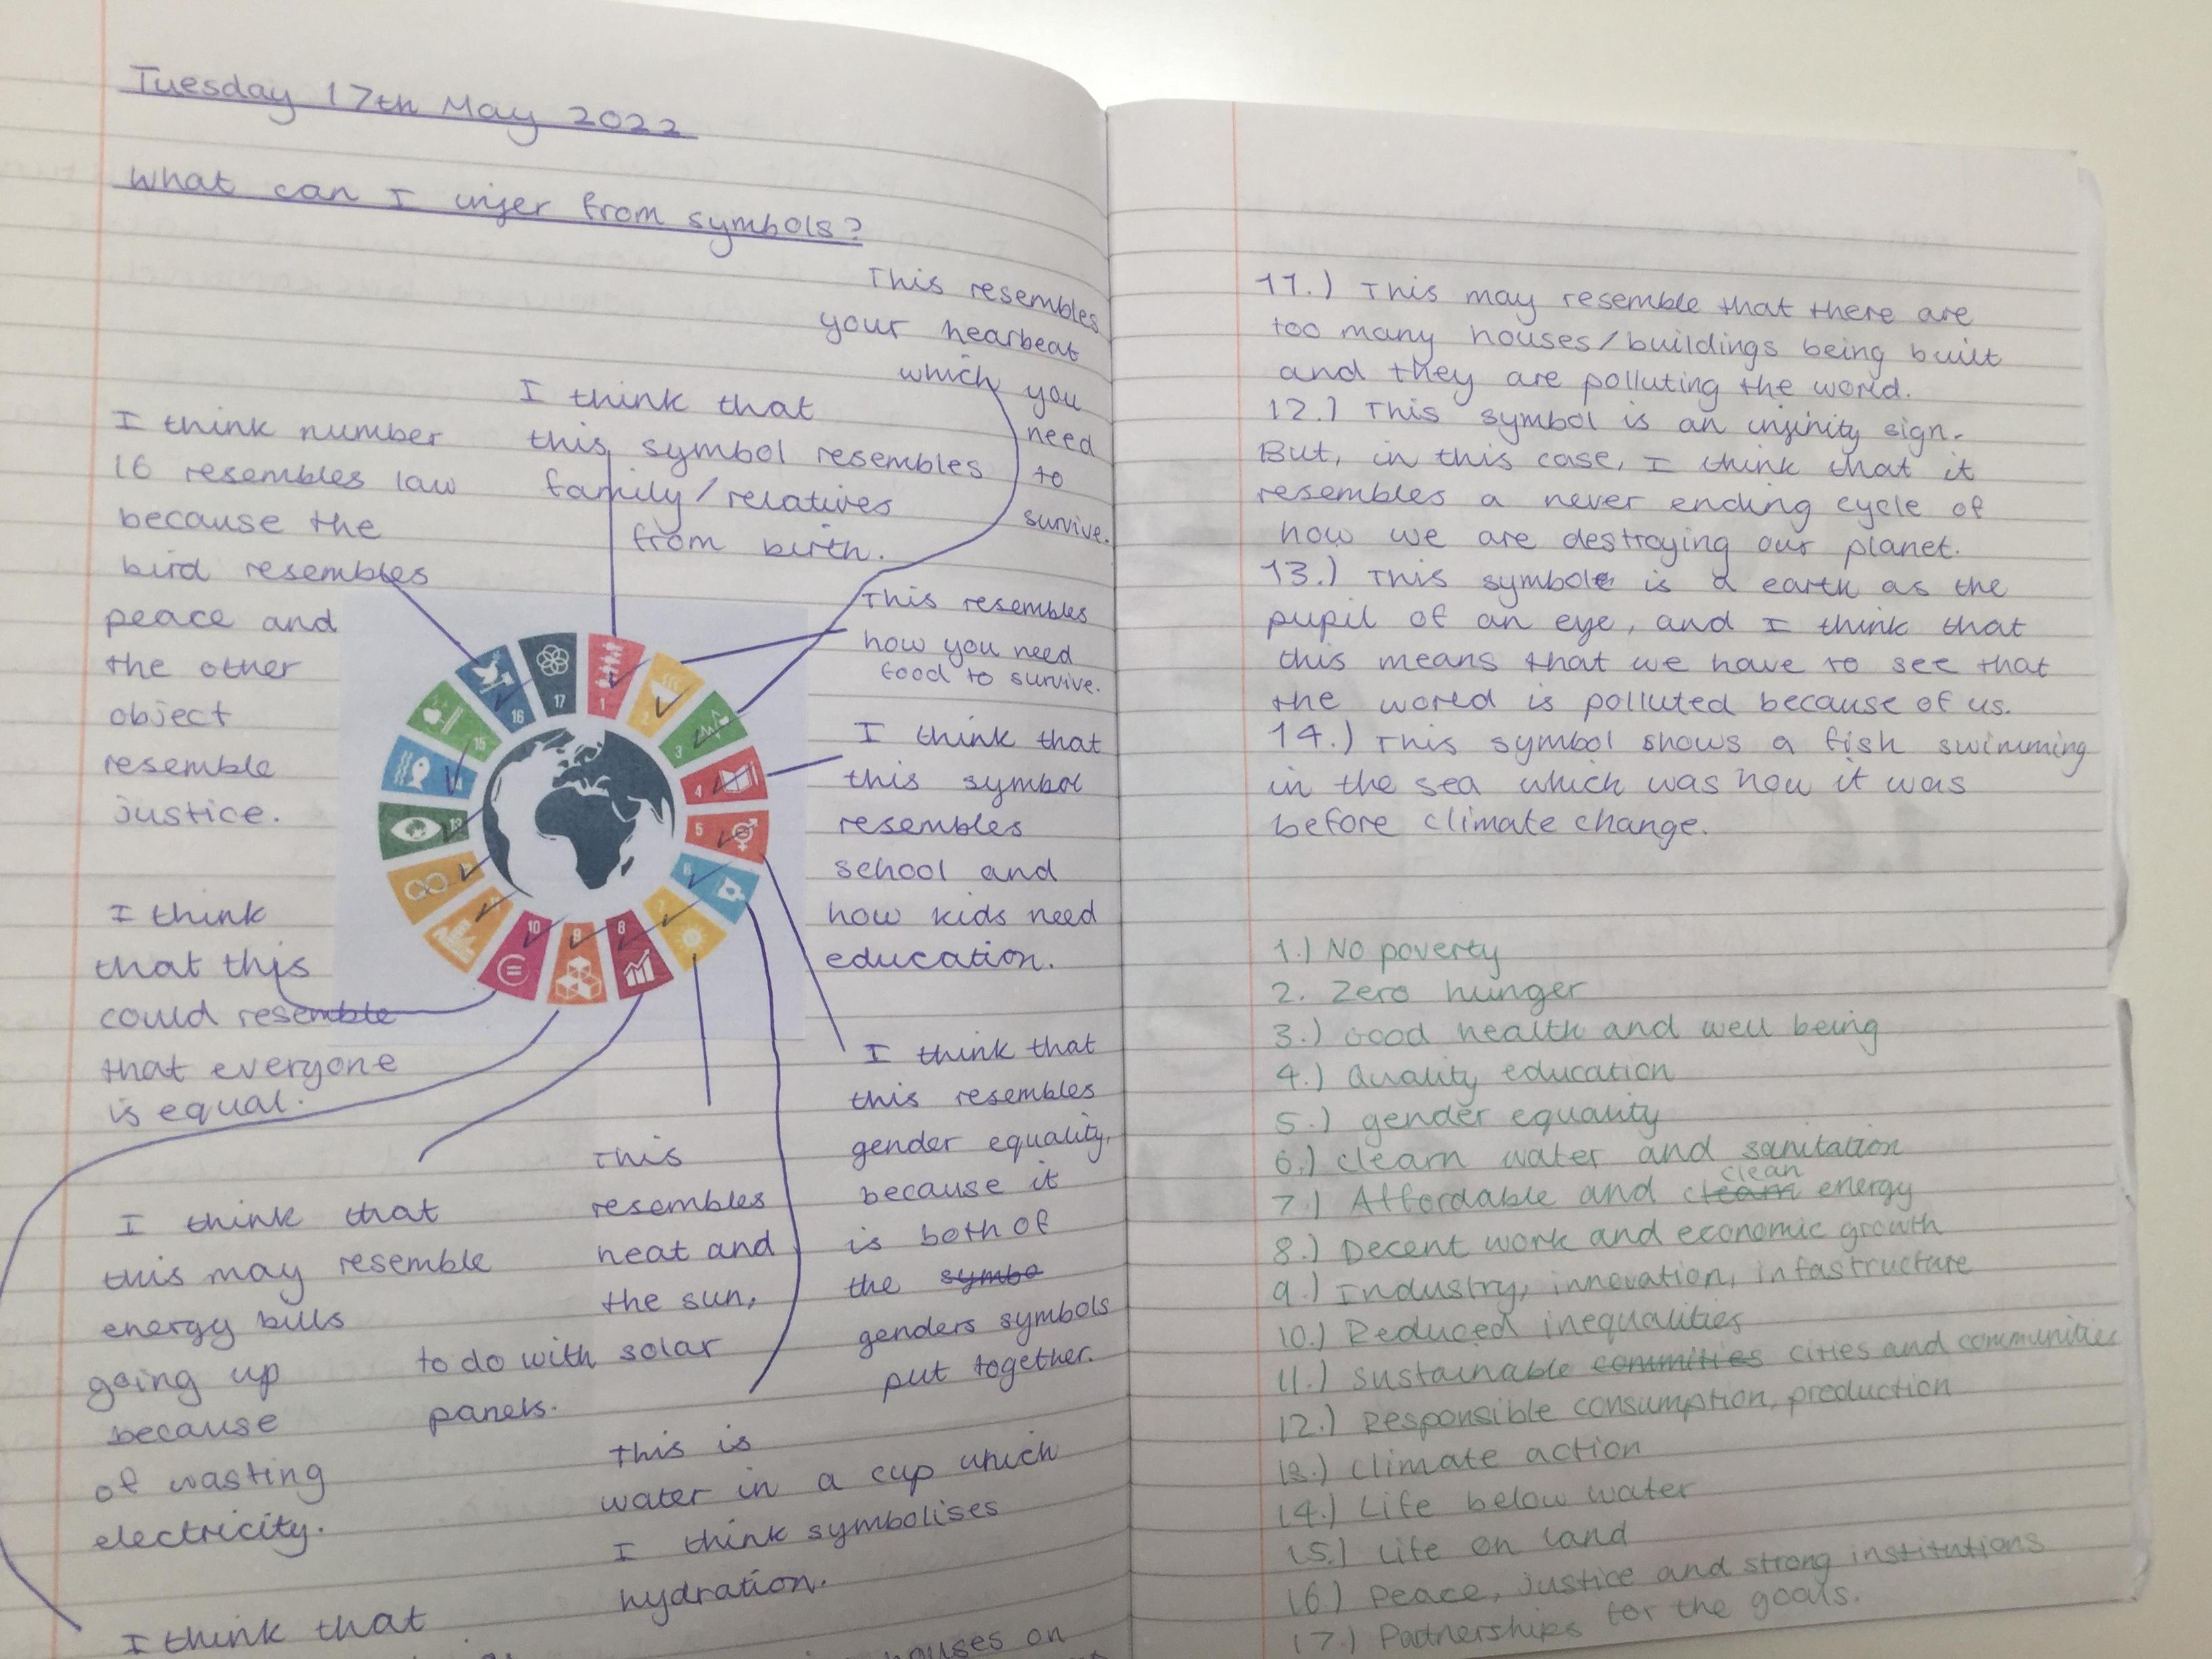 Tuesday 17th May 2022
What can I infer from symbols?
This resembles
your hearbeat
which you
need
to
survive.
I think that
this symbol resembles
family/relatives
from birth.
I think number
16 resembles law
because the
bird resembles
peace and
the other
object
resemble
justice.
This resembles
how you need
food to survive.
I think that
this symbol
resembles
school and
how kids need
education.
17
1
2
3
4
5
6
7
8
9
10
13
15
16
I think
that this
could resemble
that everyone
is equal.
I think that
this resembles
gender equality,
because it
is both of
the symbo
genders symbols
put together.
I think that
this may resemble
energy bills
going up
because
of wasting
electricity.
This
resembles
heat and
the sun,
to do with solar
panels.
This is
water in a cup which
I think symbolises
hydration.
I think that
houses on
11.) This may resemble that there are
too many houses/buildings being built
and they are polluting the world.
12.) This symbol is an infinity sign.
But, in this case, I think that it
resembles a never ending cycle of
how we are destroying our planet.
13.) This symbole is a earth as the
pupil of an eye, and I think that
this means that we have to see that
the world is polluted because of us.
14.) This symbol shows a fish swimming
in the sea which was how it was
before climate change.
1.) No poverty
2. Zero hunger
3.) Good health and well being
4.) Quality education
5.) gender equality
6.) clearn water and sanitation
clean
7.) Affordable and clearn energy
8.) Decent work and economic growth
9.) Industry, innovation, infastructure
10.) Reduced inequalities
11.) sustainable commities cities and communities
12.) Responsible consumption, production
13.) climate action
14.) Life below water
15.) Life on land
16.) Peace, justice and strong institutions
17.) Partnerships for the goals.